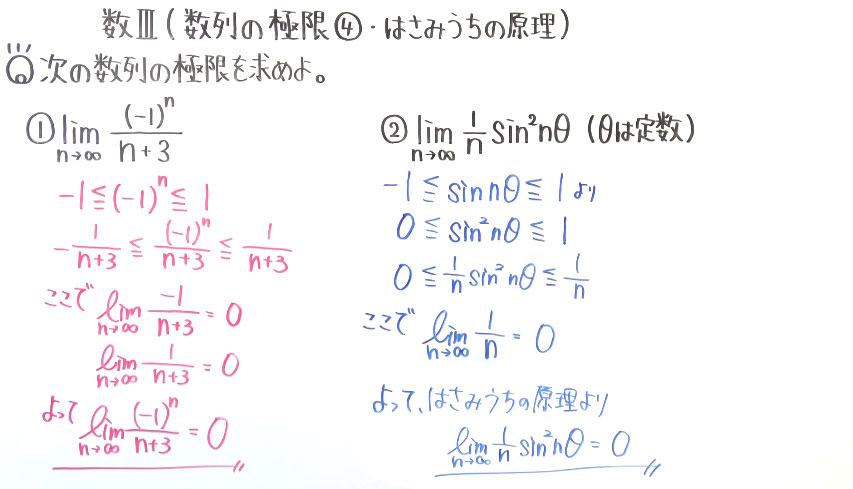 数Ⅲ(数列の極限④・はさみうちの原理)
次の数列の極限を求めよ。
① lim_{n→∞} (-1)^n/(n+3)
-1≦(-1)^n≦1
-1/(n+3)≦(-1)^n/(n+3)≦1/(n+3)
ここで lim_{n→∞} -1/(n+3)=0
lim_{n→∞} 1/(n+3)=0
よって lim_{n→∞} (-1)^n/(n+3)=0
② lim_{n→∞} 1/n sin²nθ (θは定数)
-1≦sin nθ≦1より
0≦sin²nθ≦1
0≦1/n sin²nθ≦1/n
ここで lim_{n→∞} 1/n=0
よって、はさみうちの原理より
lim_{n→∞} 1/n sin²nθ=0